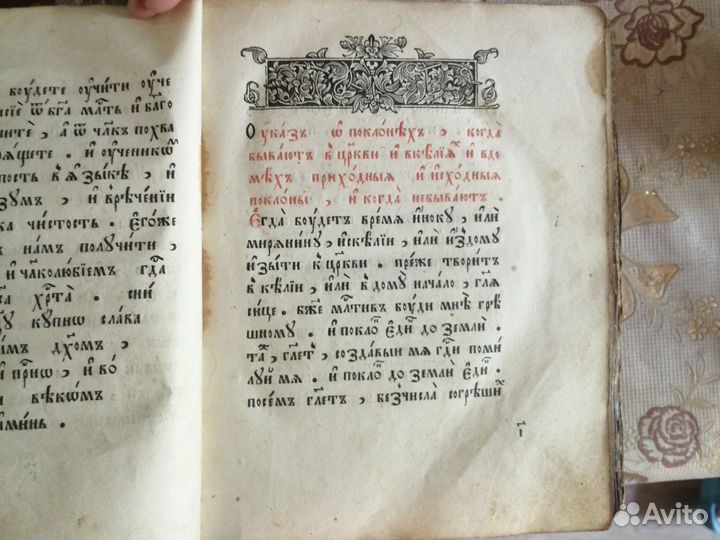 боудете оучити оуче
ѿ бга мл҃ть и бл҃го
а ѿ чл҃къ похва
и оученикѡ
въ ꙗзыкѣ , и
и вречении
чистость . Егоже
намъ получити ,
и чл҃колюбїемъ гд҃а
хр҃та . сни
купнѡ слава
дх҃ом ,
и прⷭ҇нѡ , и во
и вѣкѡмъ
аминь .
Оуказъ ѡ поклонѣхъ , когда
бываютъ в цр҃кви и в кѣлїꙗⷯ и вдо
мѣхъ приходныꙗ и исходныꙗ
поклоны , и когда небываютъ .
Егда боудетъ время иноку , или
мирянину , искѣлїи , или издому
изыти к цр҃кви . преже творитъ
в кѣлїи , или в дому начало , гл҃я
сице . бж҃е млⷭ҇тивъ боуди мнѣ грѣ
шному . и поклоⷩ҇ едиⷩ҇ до земли .
таⷤ , гл҃етъ , создавыи мя гдⷭ҇и поми
луй мя . и поклоⷩ҇ до земли едиⷩ҇ .
посемъ гл҃етъ , безчисла согрѣшиⷯ
а҃
Avito